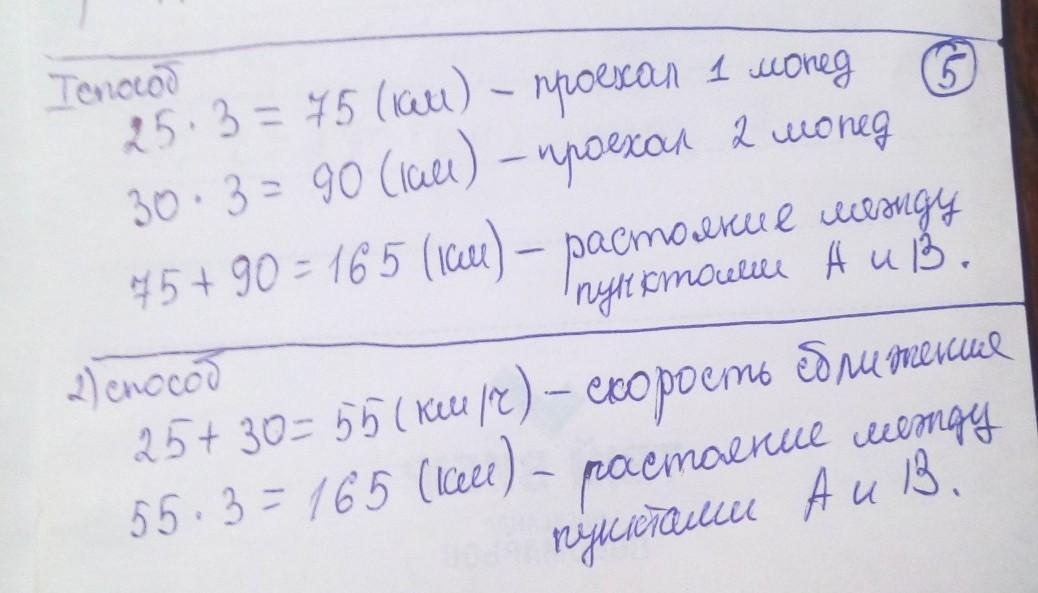 I способ
25 · 3 = 75 (км) – проехал 1 мопед
5
30 · 3 = 90 (км) – проехал 2 мопед
75 + 90 = 165 (км) – растояние между
пунктами А и В.
2) способ
25 + 30 = 55 (км/ч) – скорость сближения
55 · 3 = 165 (км) – растояние между
пунктами А и В.